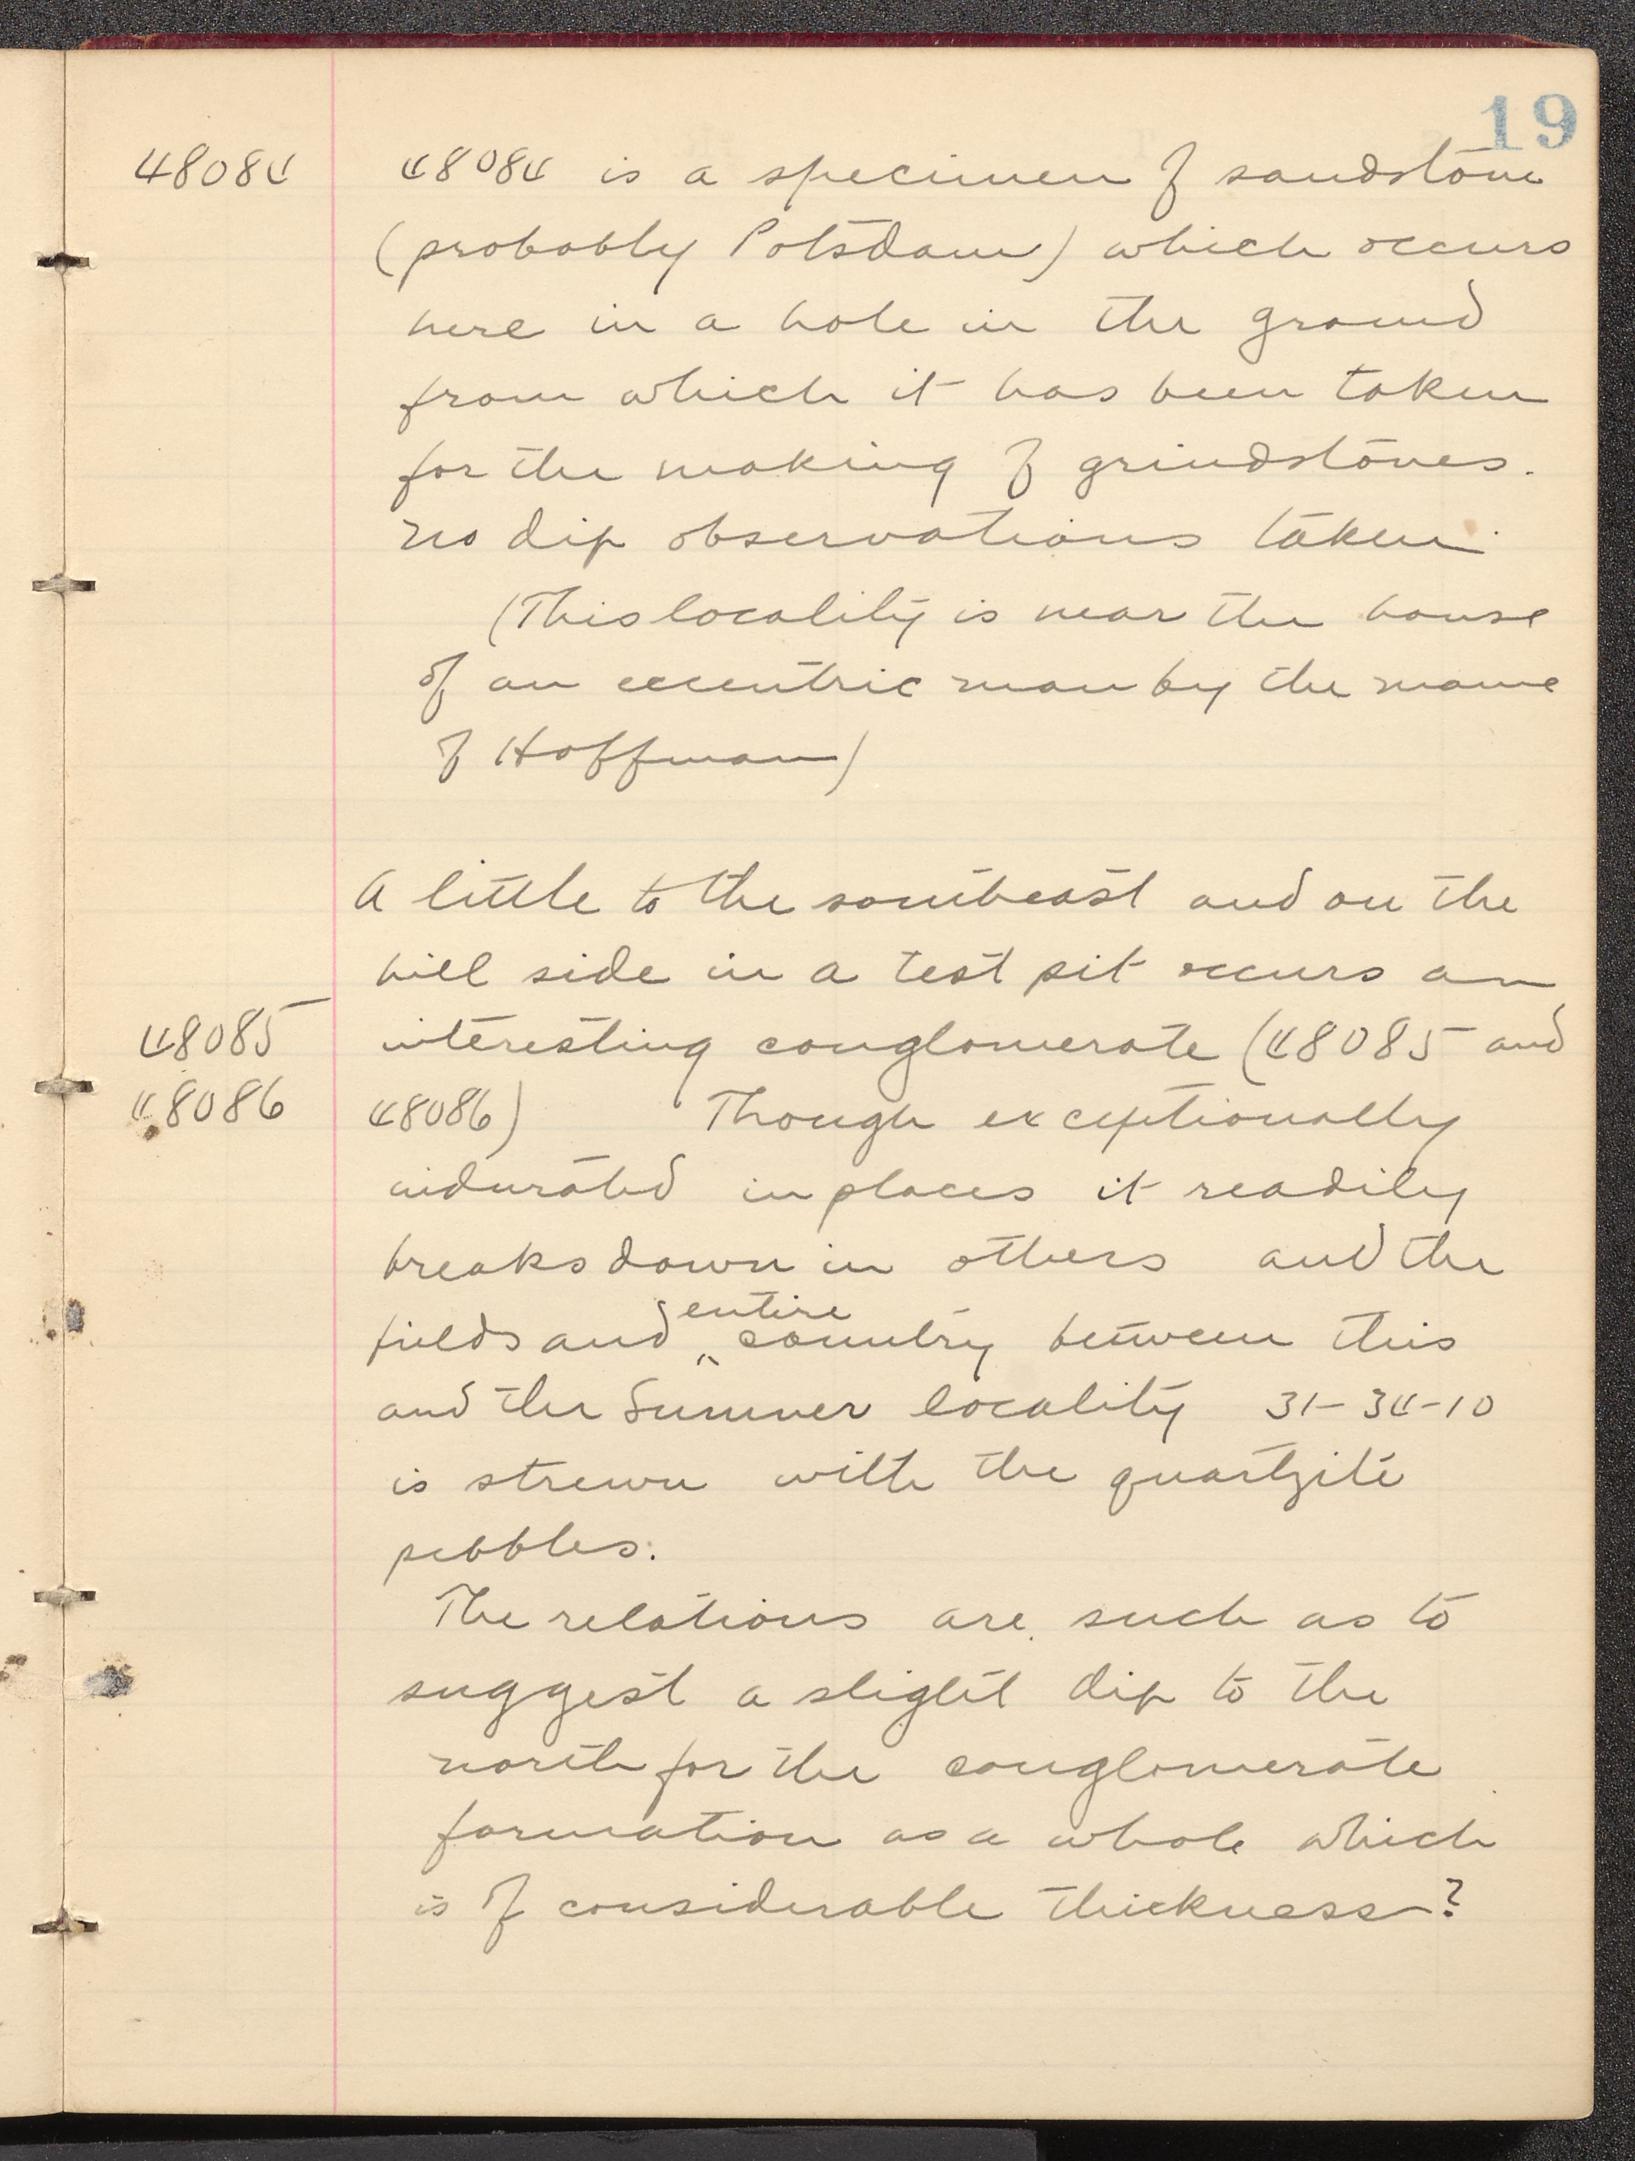 19
48084
48084 is a specimen of sandstone
(probably Potsdam) which occurs
here in a hole in the ground
from which it has been taken
for the making of grindstones.
No dip observations taken.
(This locality is near the house
of an eccentric man by the name
of Hoffman)
A little to the southeast and on the
hill side in a test pit occurs an
48085
interesting conglomerate (48085 and
48086
48086) Though exceptionally
indurated in places it readily
breaks down in others and the
fields and entire country between this
and the Sumner locality 31-34-10
is strewn with the quartzite
pebbles.
The relations are such as to
suggest a slight dip to the
north for the conglomerate
formation as a whole which
is of considerable thickness?